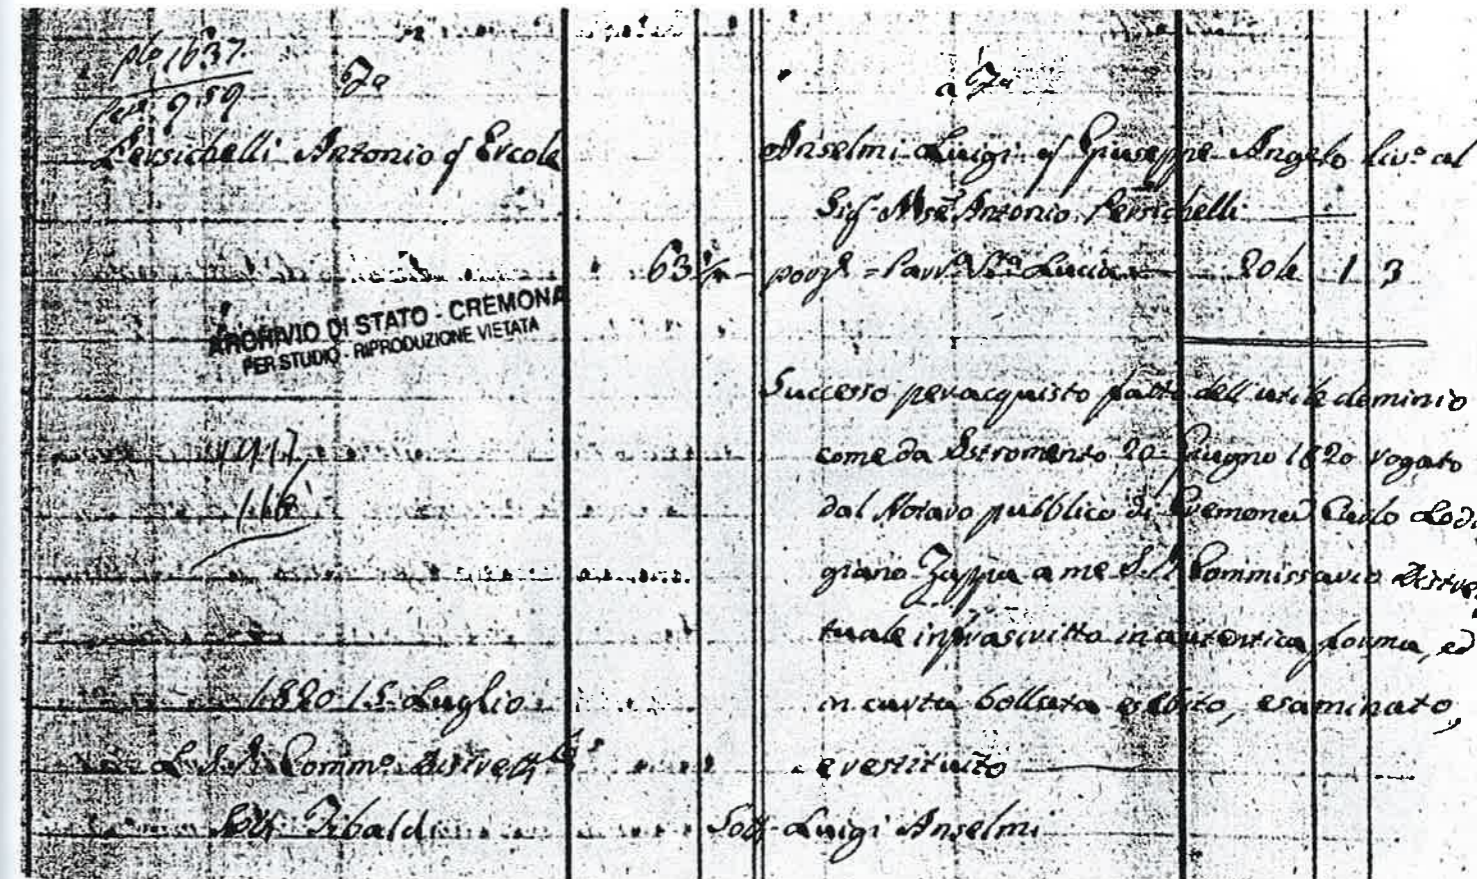 1637
9.59
Persichelli Antonio q Ercole
63
ARCHIVIO DI STATO - CREMONA
PER STUDIO - RIPRODUZIONE VIETATA
1820 15 Luglio
L I. R. Comm.º Distrett.
Sott. Tibaldi
a
Anselmi Luigi q Giuseppe Angelo liv.º al
Sig. Antonio Persichelli
Lucia 1 3
Successo per acquisto fatto dell'utile dominio
come da Istromento 20 Giugno 1820 rogato
dal Notaro pubblico di Cremona Carlo Lodi
giano Zappa a me I. R. Commissario Distret
tuale infrascritto in autentica forma, ed
in carta bollata esebito, esaminato,
e restituito
Sott. Luigi Anselmi